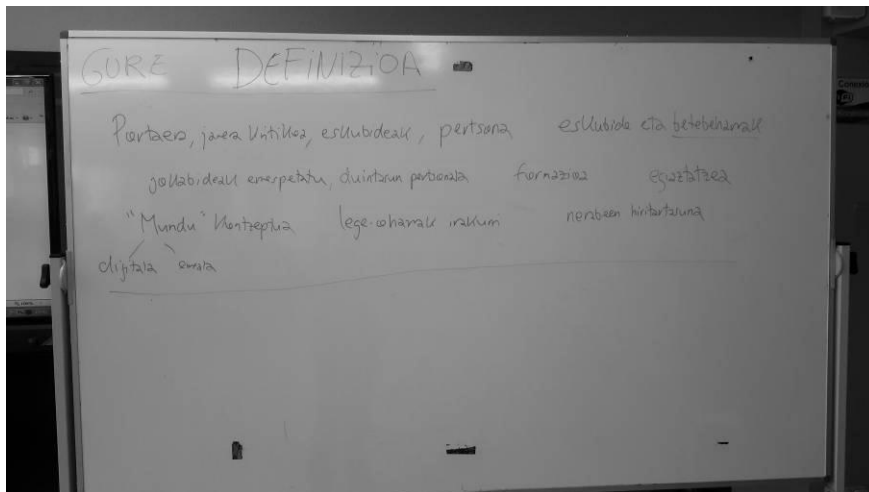 GURE DEFINIZIOA
Portaera, jarrera kritikoa, eskubideak, pertsona eskubide eta betebeharrak
jokabideak errespetatu, duintasun pertsonala formazioa egiaztatzea
"Mundu" kontzeptua lege-oharrak irakurri nerabeen hiritartasuna
digitala erreala
Conexió